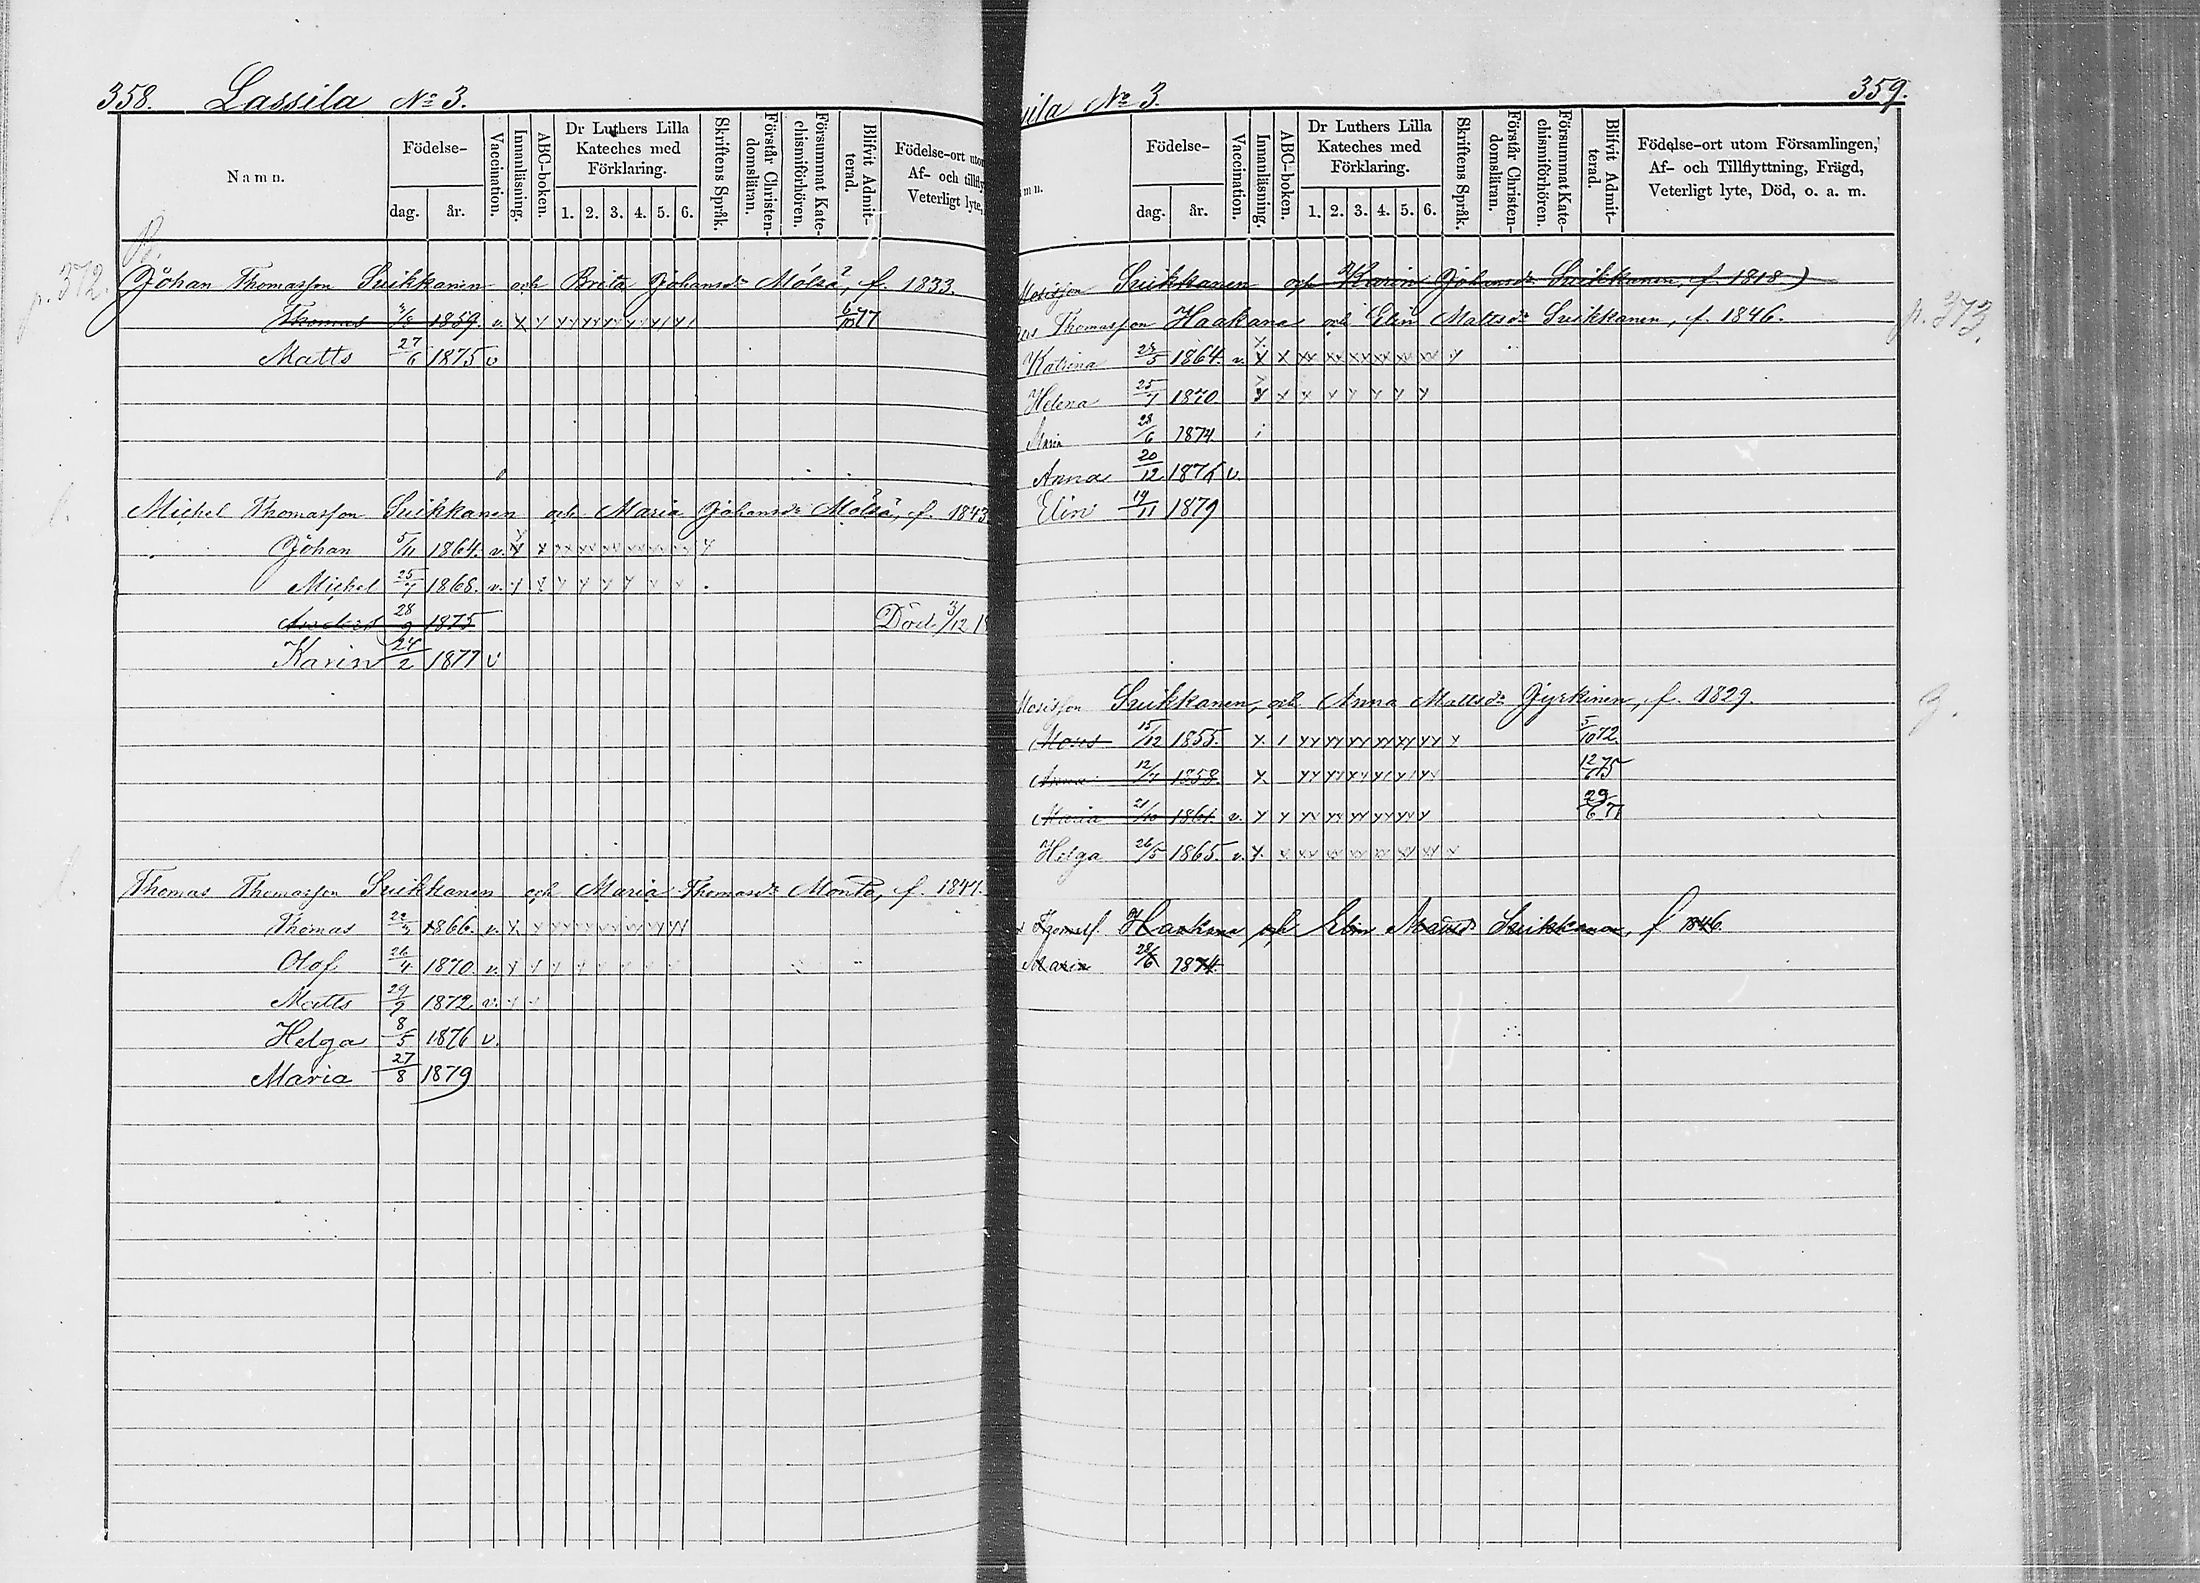 358. Lassila No 3.
Namn.
Födelse-
dag. år.
Vaccination.
Innanläsning.
ABC-boken.
Dr Luthers Lilla
Kateches med
Förklaring.
1. 2. 3. 4. 5. 6.
Skriftens Språk.
Förstår Christen-
domsläran.
Försummat Kate-
chismiförhören.
Blifvit Admit-
terad.
Födelse-ort uto
Af- och tillfly
Veterligt lyte,
p. 372.
Johan Thomasson Suikkanen och Brita Johansdr Mölsä, f. 1833.
Thomas 4/8 1859. v. 6/10 77
Matts 27/6 1875 v
Michel Thomasson Suikkanen och Maria Johansdr Mölsä, f. 1843
Johan 5/11 1864. v.
Michel 25/7 1868. v.
Anders 28/9 1875 Död 3/12 18
Karin 24/2 1877 v
Thomas Thomasson Suikkanen och Maria Thomasdr Monto, f. 1847.
Thomas 22/3 1866. v.
Olof 26/4 1870. v.
Matts 29/9 1872 v.
Helga 8/5 1876 v.
Maria 27/8 1879
ila No 3. 359.
mn.
Födelse-
dag. år.
Vaccination.
Innanläsning.
ABC-boken.
Dr Luthers Lilla
Kateches med
Förklaring.
1. 2. 3. 4. 5. 6.
Skriftens Språk.
Förstår Christen-
domsläran.
Försummat Kate-
chismiförhören.
Blifvit Admit-
terad.
Födelse-ort utom Församlingen,
Af- och Tillflyttning, Frägd,
Veterligt lyte, Död, o. a. m.
Mosisson Suikkanen och Karin Johansdr Suikkanen, f. 1818.)
Thomasson Haakana och Elin Mattsdr Suikkanen, f. 1846.
p. 373.
Katrina 28/5 1864. v.
Helena 25/7 1870
Maria 28/6 1874
Anna 20/12 1876 v.
Elin 14/11 1879
Mosisson Suikkanen, och Anna Mattsdr Jyrkinen, f. 1829.
Moses 15/12 1855. 5/10 72.
Anna 12/7 1858. 12/6 75
Maria 21/10 1861. v. 29/6 77
Helga 26/5 1865. v.
Thomass. Haakana och Elin Mattsdr Suikkanen, f 1846.
Maria 28/6 1874.